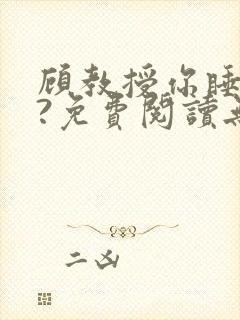 顧教授你睡
?免費閱讀
二凶